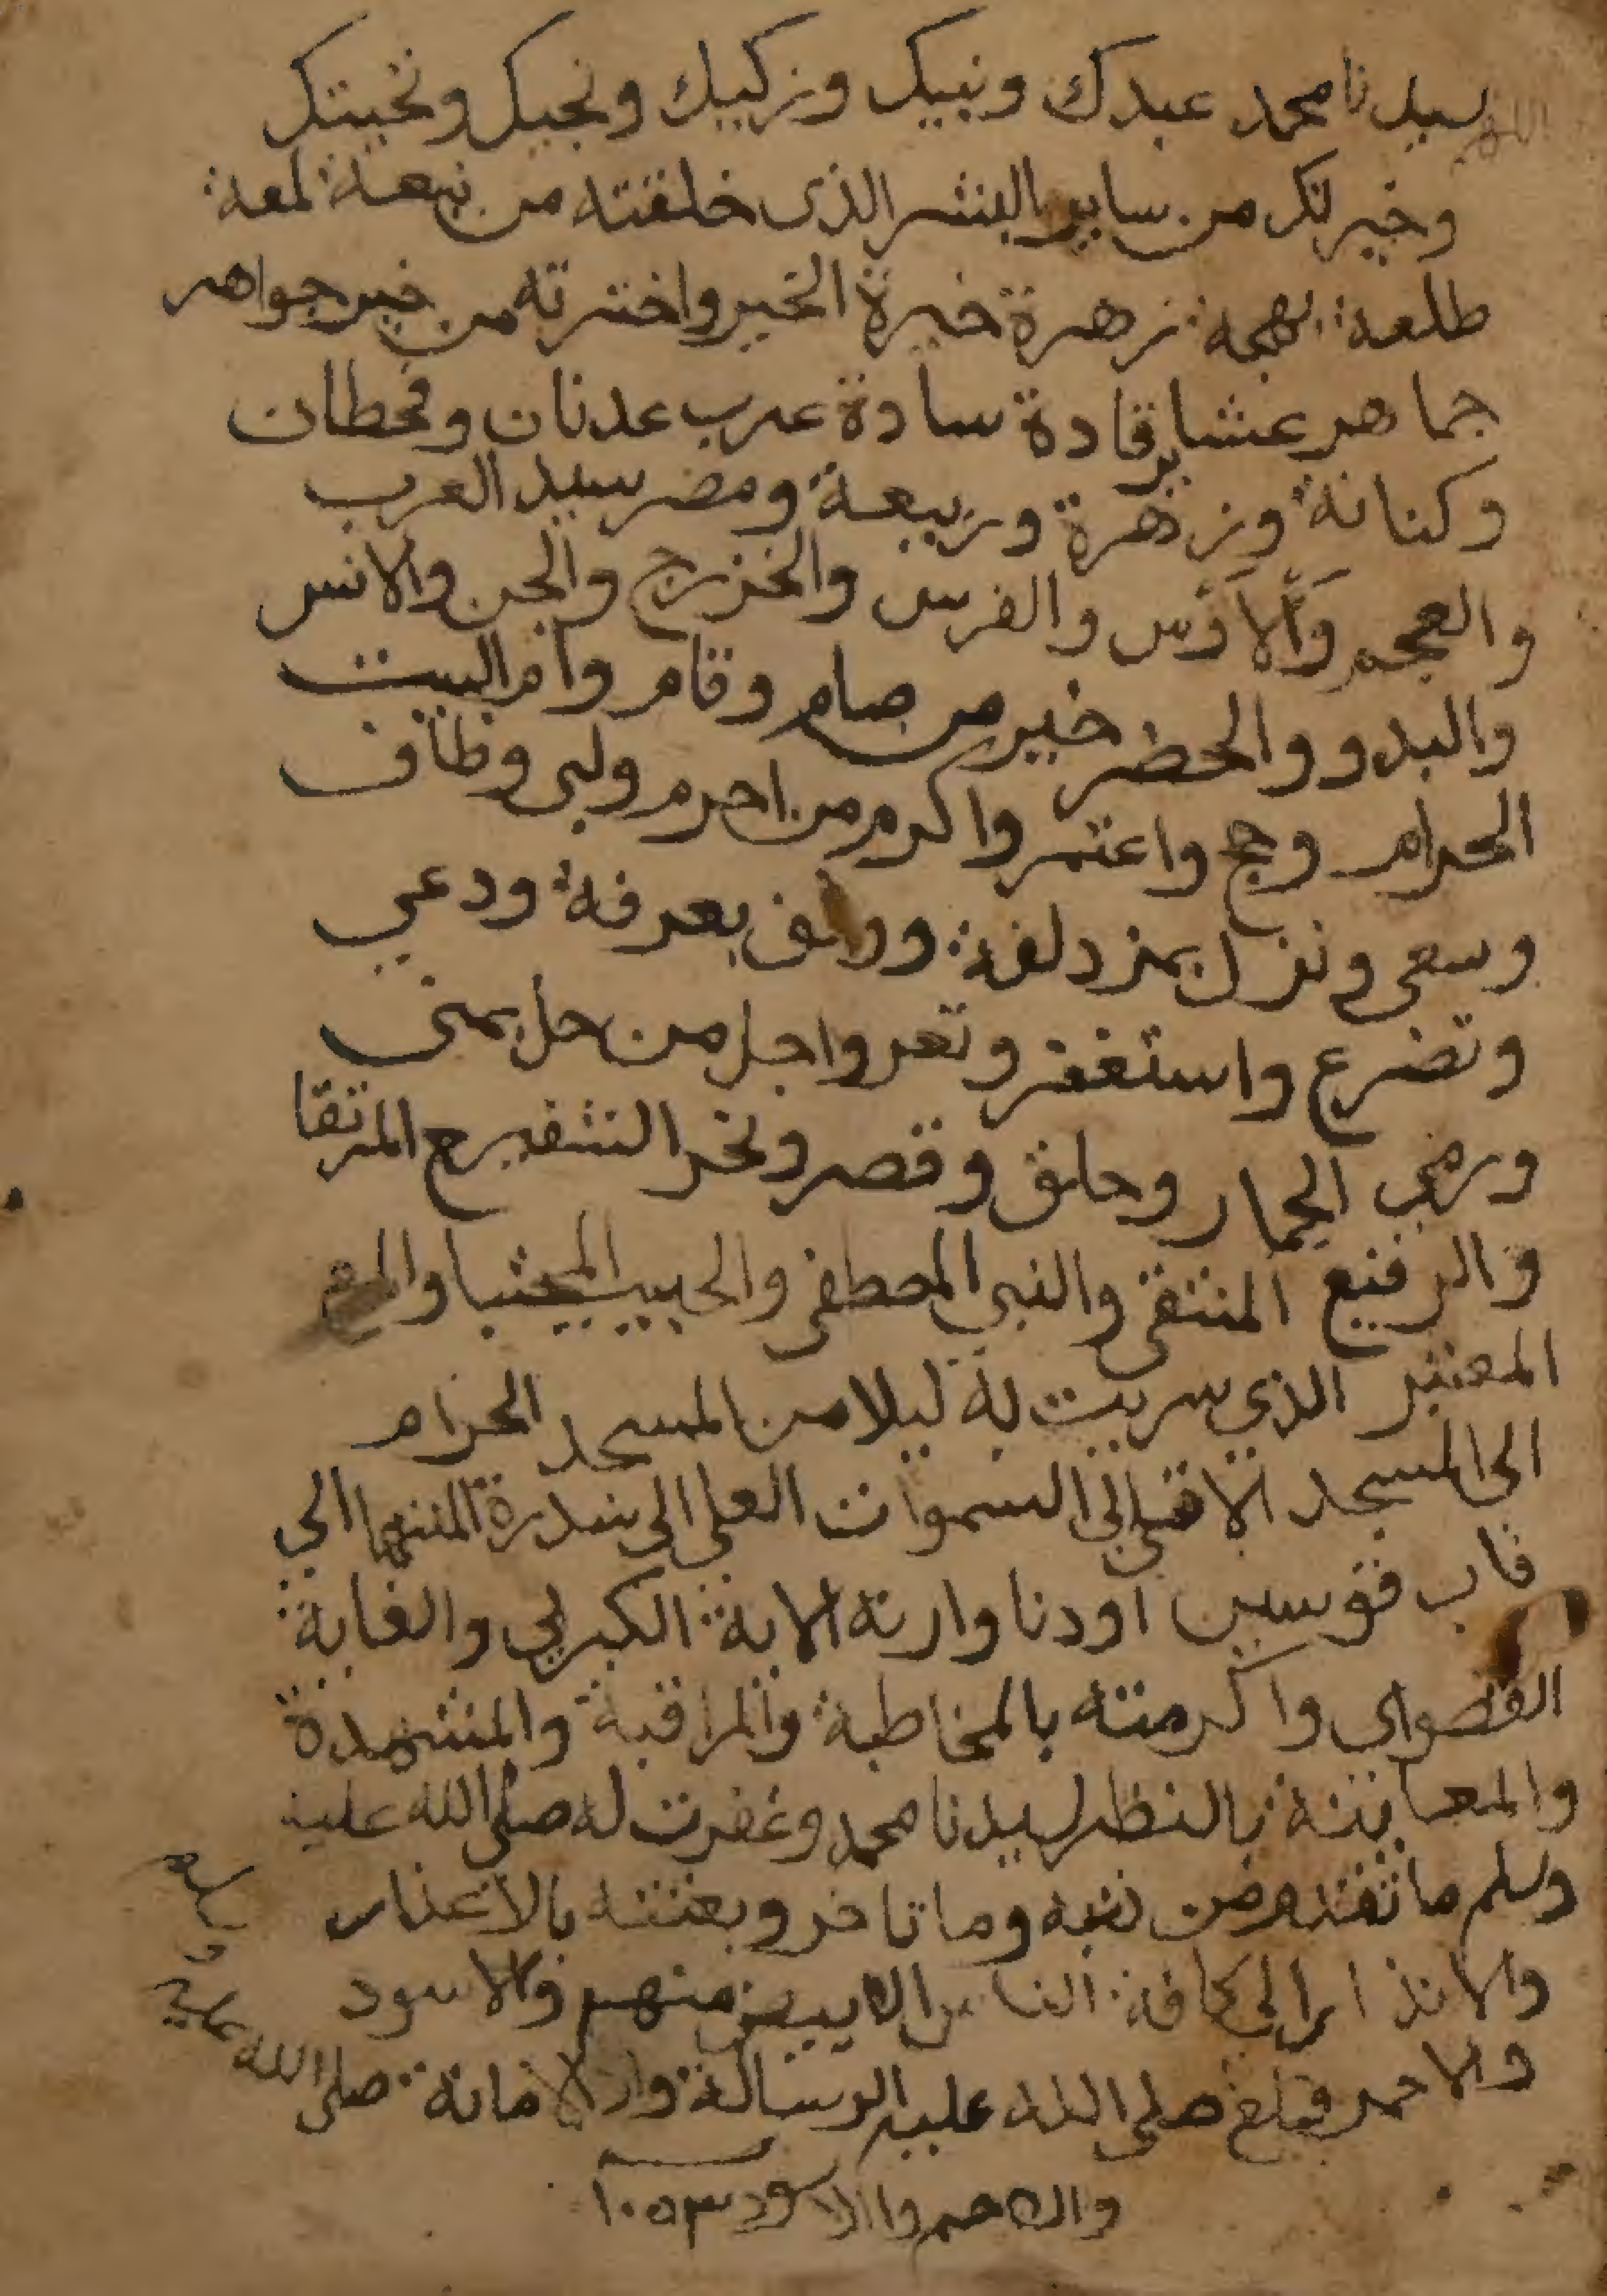 سيدنا محمد عبدك ونبيك وزكييك ونجيك ونخبيتك
وخيرتك من ساير البشر الذي خلقته من نبعة لمعة
طلعة بهجة زهرة خيرة الخير واخترته من خير جواهر
جماهر عشاير قادة سادة عرب عدنان وقحطان
وكنانة وزهرة وربيعة ومضر سيد العرب
والعجم والاوس والفرس والخزرج والجن والانس
والبدو والحضر خير من صام وقام وام البيت
الحرام وحج واعتمر واكرم من احرم ولبى وطاف
وسعى ونزل بمزدلفة ووقف بعرفة ودعي
وتضرع واستغفر ونعر واجل من حل بمنى
ورمى الجمار وحلق وقصر ونحر الشفيع المرتقا
والرفيع المنتقى والنبي المصطفى والحبيب المجتبا
المعتبر الذي سريت به ليلا من المسجد الحرام
الى المسجد الاقصى الى السموات العلى الى سدرة المنتها الي
قاب قوسين اودنا واريته الاية الكبرى والغاية
القصواى واكرمته بالمخاطبة والمراقبة والمشهدة
والمعاينة بالنظر لسيدنا محمد وغفرت له صلى الله عليه
وسلم ما تقدم من ذنبه وما تاخر وبعثته بالاعذار
والانذار الى كافة الناس الابيض منهم والاسود
والاحمر فبلغ صلى الله عليه الرسالة واد الامانة صلى الله عليه
وسلم
والاحمر والاسود ١٠٥٣